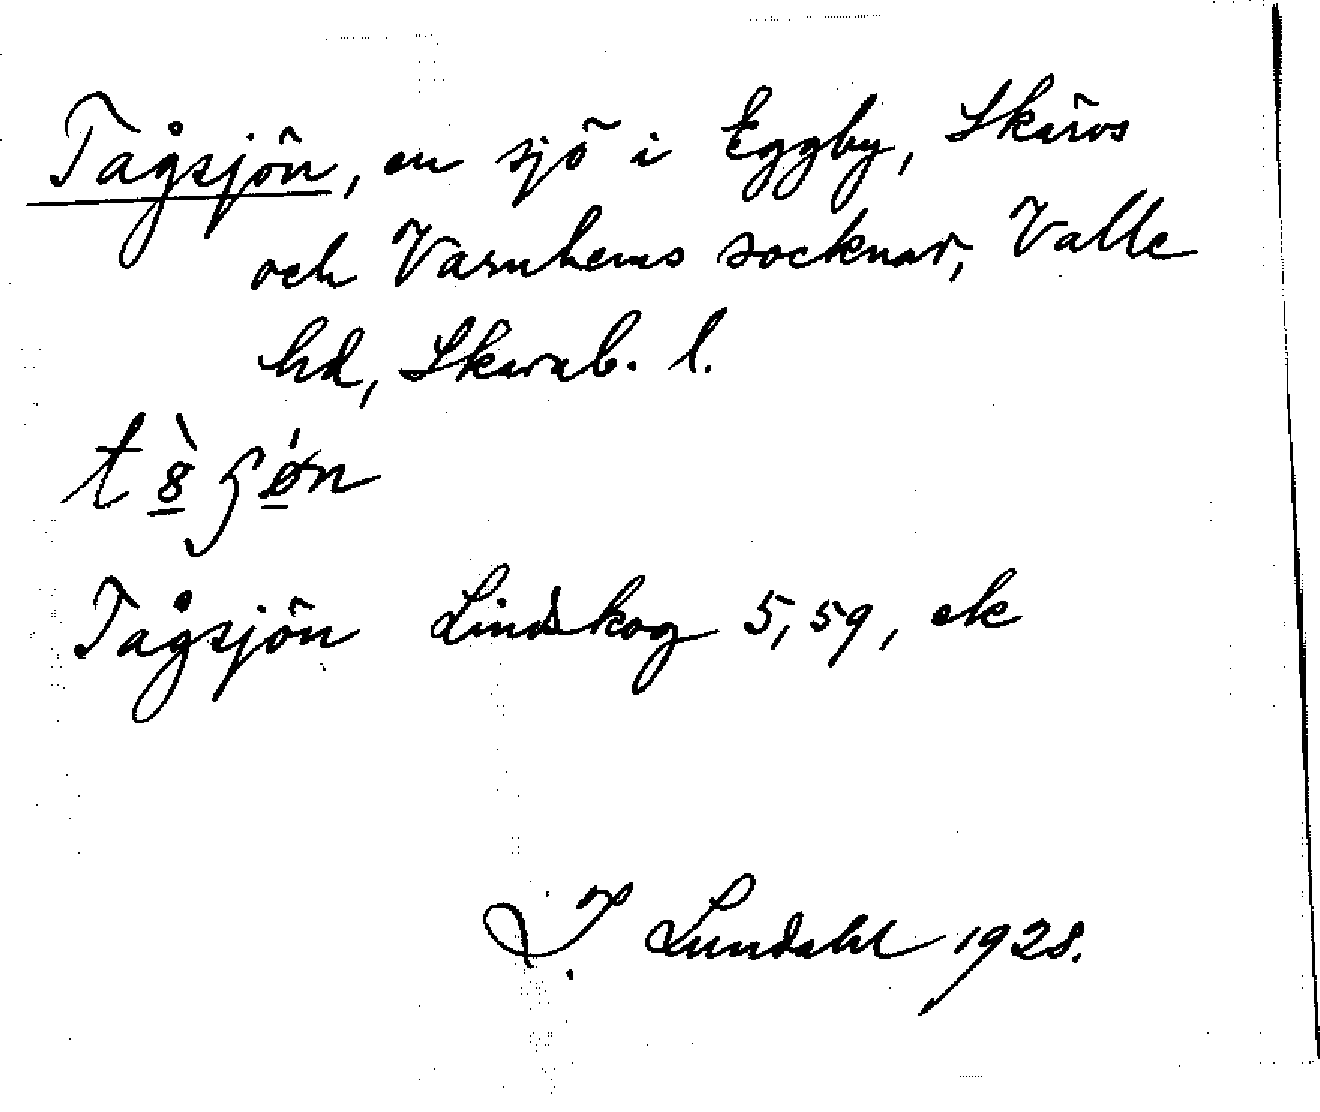 Tågsjön, en sjö i Eggby, Skärvs
och Varnhems socknar, Valle
hd, Skarab. l.
Tågsjön Lindskog 5,59, ek
I. Lundahl 1928.